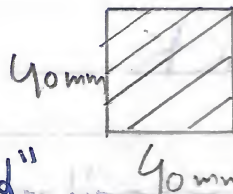 40mm
d"
40mm